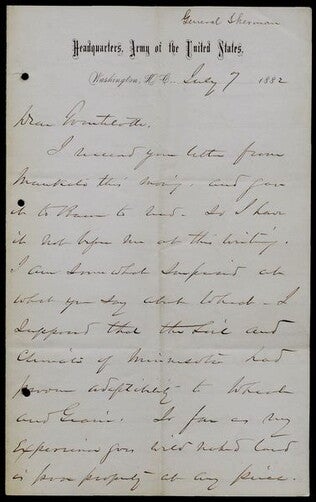 General Sherman
Headquarters, Army of the United States.
Washington, D.C. July 7 1882
Dear
I received your letter from
Mankato this morng. and gave
it to to read - So I have
it not before me at this writing.
I am Somewhat Surprised at
what you Say about Wheat - I
Supposed that the Soil and
Climate of Minnesota had
proven adaptability to Wheat
and Grain. So far as my
Experience goes wild naked land
is poor property at any price.